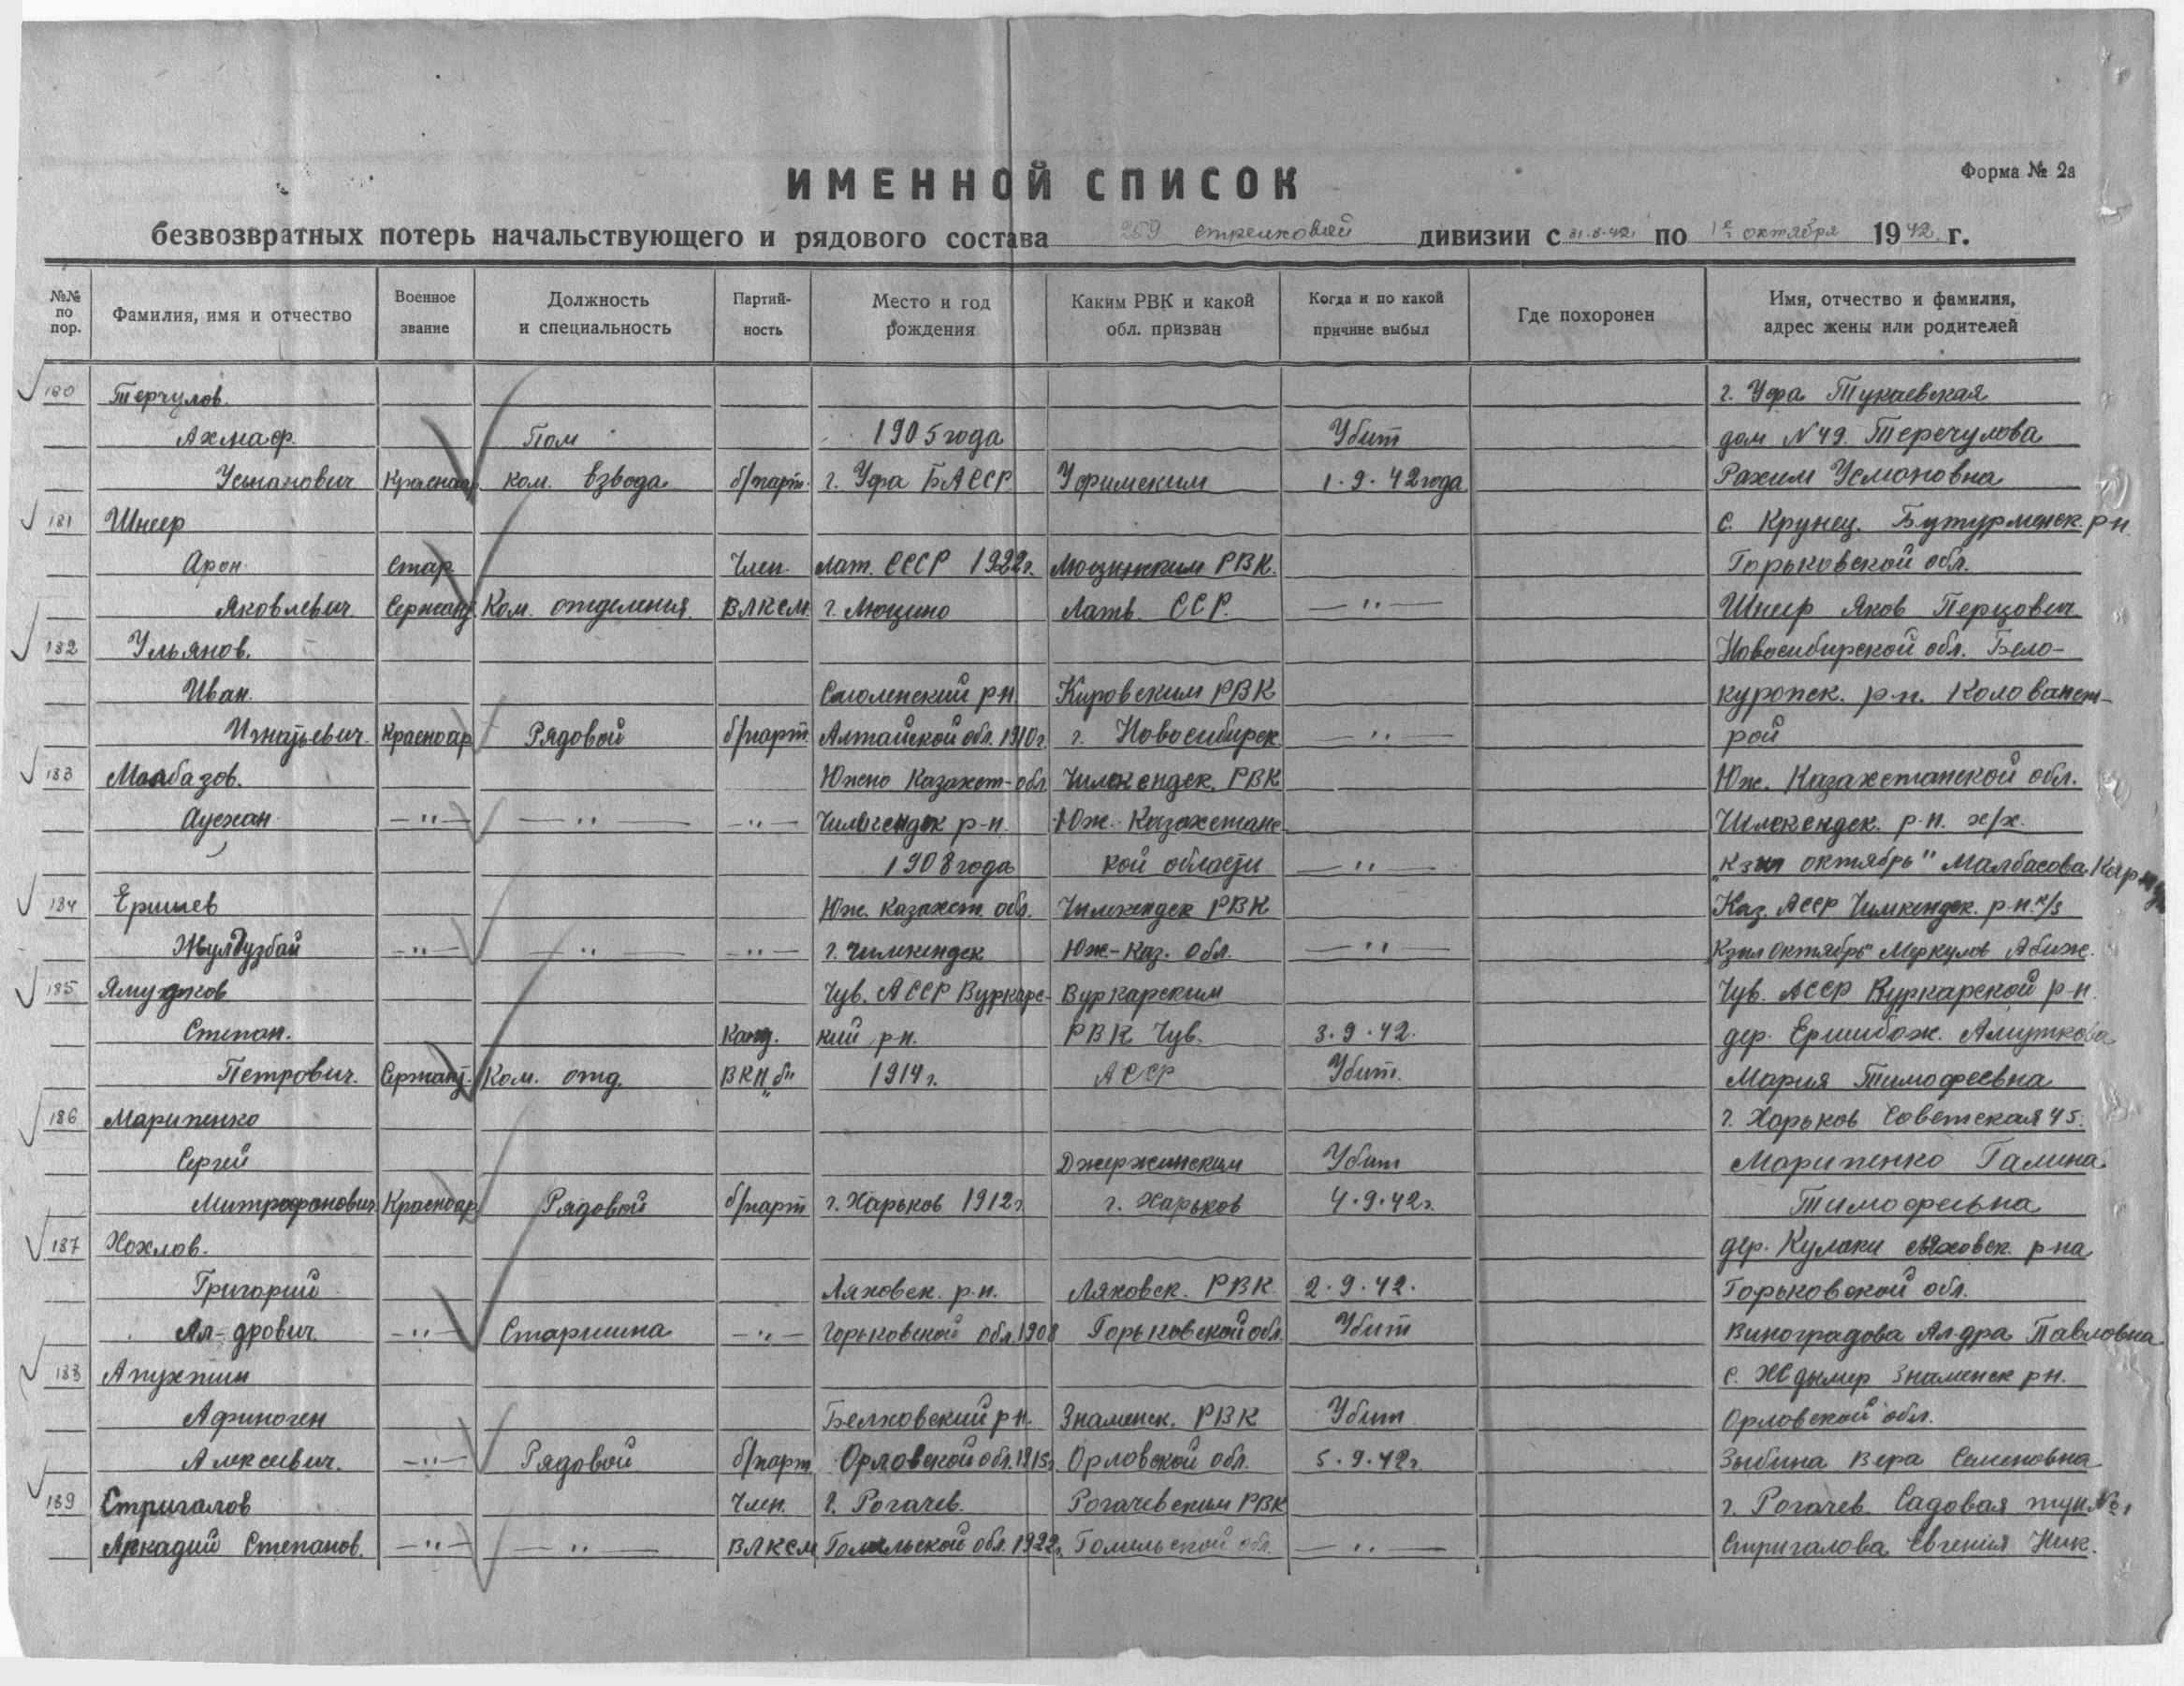 Форма № 2а
ИМЕННОЙ СПИСОК
безвозвратных потерь начальствующего и рядового состава 259 стрелковой дивизии с 31.8.42 по 1е октября 1942 г.
№№ по пор.
Фамилия, имя и отчество
Военное звание
Должность и специальность
Партий-ность
Место и год рождения
Каким РВК и какой обл. призван
Когда и по какой причине выбыл
Где похоронен
Имя, отчество и фамилия, адрес жены или родителей
180 Терчулов. г. Уфа Тукаевская
Ахмаф. Пом 1905 года Убит дом №49. Теречулова
Усманович Красноар ком. взвода б/парт. г. Уфа БАССР Уфимским 1.9.42 года Рахим Усмановна
181 Шнеер с. Крунец. Бутурменск. р-н.
Арон Стар. Член Лат. СССР 1922г. Люцинским РВК. Горьковской обл.
Яковлевич. Сержант Ком. отделения. ВЛКСМ. г. Люцино Латв. ССР. —"— Шнеер Яков Перцович
182 Ульянов. Новосибирской обл. Бело-
Иван. Смоленский р-н Кировским РВК куропск. р-н. Колованст-
Игнатьевич. Красноар Рядовой б/парт. Алтайской обл. 1910г. г. Новосибирск —"— рой
183 Малбазов. Южно Казахст-обл Чимкендск. РВК Юж. Казахстанской обл.
Аусхан —"— —"— —"— Чимкендск р-н. Юж. Казахстанс- Чимкендск. р-н. х/х.
1908 года кой области —"— „Кзил октябрь" Малбасова
184 Ершиев Юж. Казахст. обл. Чимкендск РВК Каз. АССР Чимкендск. р-н. к/з
Жулдузбай —"— —"— —"— г. Чимкендск Юж-Каз. обл. —"— „Кзил Октябрь" Меркулов Абиж.
185 Чув. АССР Вуркарс- Вуркарским Чув. АССР Вуркарской р-н.
Степан. Канд. кий р-н. РВК Чув. 3.9.42. дер. Ершибож. Амуткова
Петрович. Сержант. Ком. отд. ВКП„б" 1914г. АССР Убит. Мария Тимофеевна
186 Марипенко г. Харьков Советская 45.
Сергей Джержинским Убит Марипенко Галина
Митрофанович Красноар Рядовой б/парт г. Харьков 1912г г. Харьков 4.9.42г. Тимофеевна
187 Хохлов. дер. Кулаки Ляховск. р-на
Григорий Ляховск. р-н. Ляховск. РВК 2.9.42. Горьковской обл.
Ал-дрович —"— Старшина —"— Горьковской обл. 1908 Горьковской обл. Убит Виноградова Ал-дра Павловна
188 Апухтин с. Ждымир Знаменск р-н.
Афиноген Белховский р-н. Знаменск. РВК Убит Орловской обл.
Алексеевич. —"— Рядовой б/парт Орловской обл. 1915г Орловской обл. 5.9.42г. Зыбина Вера Семеновна
189 Стригалов Член. г. Рогачев. Рогачевским РВК г. Рогачев. Садовая
Аркадий Степанов. —"— —"— ВЛКСМ Гомельской обл. 1922г. Гомельской обл. —"— Стригалова Евгения Ник.